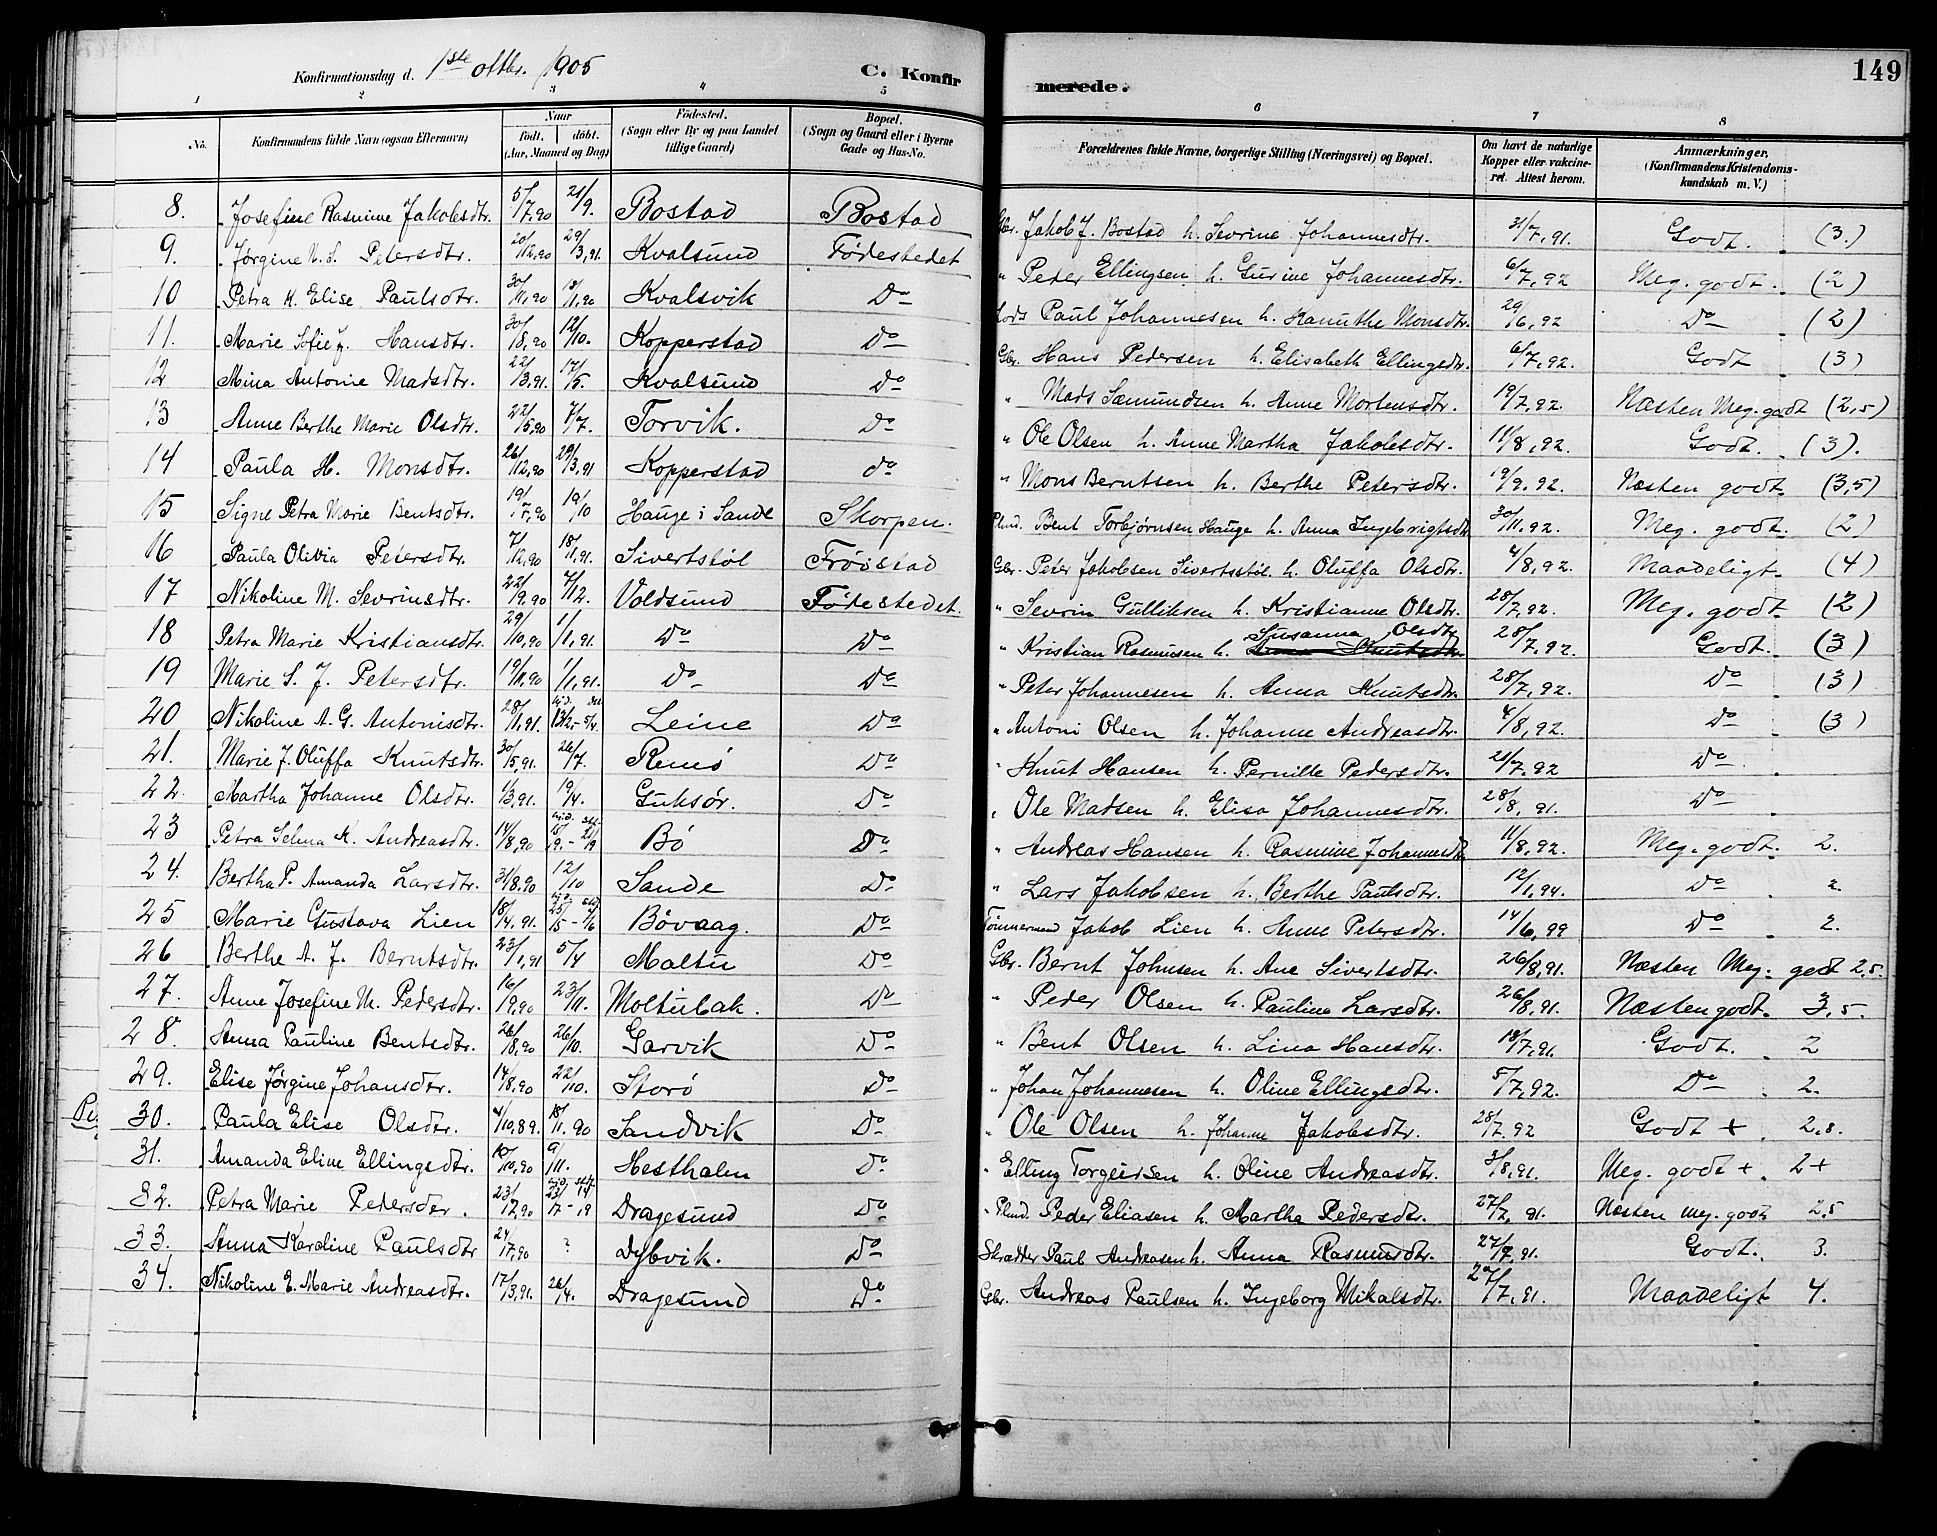 Konfirmationsdag d. 1ste oktbr. 1905 C. Konfirmerede. 149
1 2 3 4 5 6 7 8
No. Konfirmandens fulde Navn (ogsaa Efternavn) Naar födt. döbt. (Aar, Maaned og Dag) Födested. (Sogn eller By og paa Landet tillige Gaard) Bopæl. (Sogn og Gaard eller i Byerne Gade og Hus-No. Forældrenes fulde Navne, borgerlige Stilling (Næringsvei) og Bopæl. Om havt de naturlige Kopper eller vakcineret. Attest herom. Anmærkninger. (Konfirmandens Kristendomskundskab m. V.)
8. Josefine Rasmine Jakobsdtr. 5/7,90 21/9. Bostad Bostad Gbr. Jakob J. Bostad h. Sevrine Johannesdtr. 31/7,91. Godt. (3.)
9. Jørgine N. S. Petersdtr. 20/12,90 29/3,91. Kvalsund Fødestedet " Peder Ellingsen h. Gurine Johannesdtr. 6/7,92 Meg. godt. (2)
10 Petra K. Elise Paulsdtr. 30/11,90 /11,90 Kvalsvik Do Lods Paul Johannesen h. Hanuthe Monsdtr. 29/6,92 Do (2)
11. Marie Sofie J. Hansdtr. 30/8,90 12/10. Kopperstad Do Gbr. Hans Pedersen h. Elisabeth Ellingsdtr. 6/7,92. Godt (3)
12 Mina Antonie Madsdtr. 22/3,91. 17/5. Kvalsund Do " Mads Sæmundsen h. Anne Mortensdtr. 19/7,92. Næsten Meg. godt (2,5)
13 Anne Berthe Marie Olsdtr. 22/5,90 7/7. Torvik. Do " Ole Olsen h. Anne Martha Jakobsdtr. 11/8,92. Godt. (3).
14 Paula H. Monsdtr. 26/12,90 29/3,91 Kopperstad do " Mons Berntsen h. Berthe Petersdtr. 19/9.92. Næsten godt. (3,5)
15 Signe Petra Marie Bentsdtr. 19/7,90 19/10 Hauge i Sande Skorpen. Plmd. Bent Torbjørnsen Hauge h. Anna Ingebrigtsdtr 30/11.92. Meg. godt. (2)
16 Paula Olivia Petersdtr. 7/12,90 18/11,91. Sivertstøl Frøistad Gbr. Peter Jakobsen Sivertsstøl h. Oluffa Olsdtr. 4/8,92. Maadeligt. (4)
17 Nikoline M. Sevrinsdtr. 22/9.90 7/12. Voldsund Fødestedet. " Sevrin Gulliksen h. Kristianne Olsdtr. 28/7,92. Meg. godt. (2)
18 Petra Marie Kristiansdtr. 29/10,90 1/1,91. Do Do " Kristian Rasmusen h. Susanna Olsdtr 28/7,92. Godt. (3)
19 Marie S. J. Petersdtr. 19/11,90 1/1,91. Do Do " Peter Johannesen h. Anna Knutsdtr. 28/7,92. Do (3)
20 Nikoline A. G. Antonisdtr. 28/11,91. 13/2.-5/4. Leine Do " Antoni Olsen h. Johanne Andreasdtr. 4/8,92. Do (3)
21. Marie J. Oluffa Knutsdtr. 30/5,91. 26/7. Remø Do " Knut Hansen h. Pernille Pedersdtr. 21/7.92 Do
22. Martha Johanne Olsdtr. 1/3,91. 19/4. Guksør. Do " Ole Madsen h. Elisa Johannesdtr. 28/8,91. Do
23 Petra Selma K. Andreasdtr. 14/8,90 Bø Do " Andreas Hansen h. Rasmine Johannesdtr 11/8,92. Meg. godt. 2.
24. Bertha P. Amanda Larsdtr. 31/8.90 12/10 Sande Do " Lars Jakobsen h. Berthe Paulsdtr. 12/1,94. Do 2.
25 Marie Gustava Lien 18/4,91. Bøvaag. Do Tømmermand Jakob Lien h. Anne Petersdtr. 14/6,99 Do 2.
26 Berthe A. J. Berntsdtr. 23/1,91 5/4 Maltu Do Gbr. Bernt Johnsen h. Ane Sivertsdtr. 26/8,91. Næsten Meg. godt 2,5.
27. Anne Josefine M. Pedersdtr. 16/9,90 23/11. Moltubak. Do " Peder Olsen h. Paulina Larsdtr. 26/8,91. Næsten godt. 3,5.
28. Anna Pauline Bentsdtr. 26/8,90 26/10. Garvik Do " Bent Olsen h. Lina Hansdtr. 18/7,91. Godt. 2
29. Elise Jørgine Johansdtr. 14/8,90 22/10. Storø Do " Johan Johannesen h. Oline Ellingsdtr. 5/7,92. Do 2.
30. Paula Elise Olsdtr. 4/10,89. 18/11.90 Sandvik Do " Ole Olsen h. Johanne Jakobsdtr. 28/7.92 Godt + 2,8.
31. Amanda Eline Ellingsdtr. 10/10,90 9/11. Hesthalen Do " Elling Torgeirsen h. Oline Andreasdtr. 3/8,91. Meg. godt + 2+
32. Petra Marie Pedersdtr. 23/7,90 Dragesund Do " Plmd. Peder Eliasen h. Martha Pedersdtr. 27/7,91. Næsten meg. godt 2,5
33. Anna Karoline Paulsdtr 24/7,90 ? Dybvik. Do Skrædder Paul Andreasen h. Anna Rasmusdtr. 27/7,91. Godt. 3.
34. Nikoline E. Marie Andreasdtr. 17/3,91. 26/4. Dragesund Do Gbr. Andreas Paulsen h. Ingeborg Mikalsdtr. 27/7,91. Maadeligt 4.